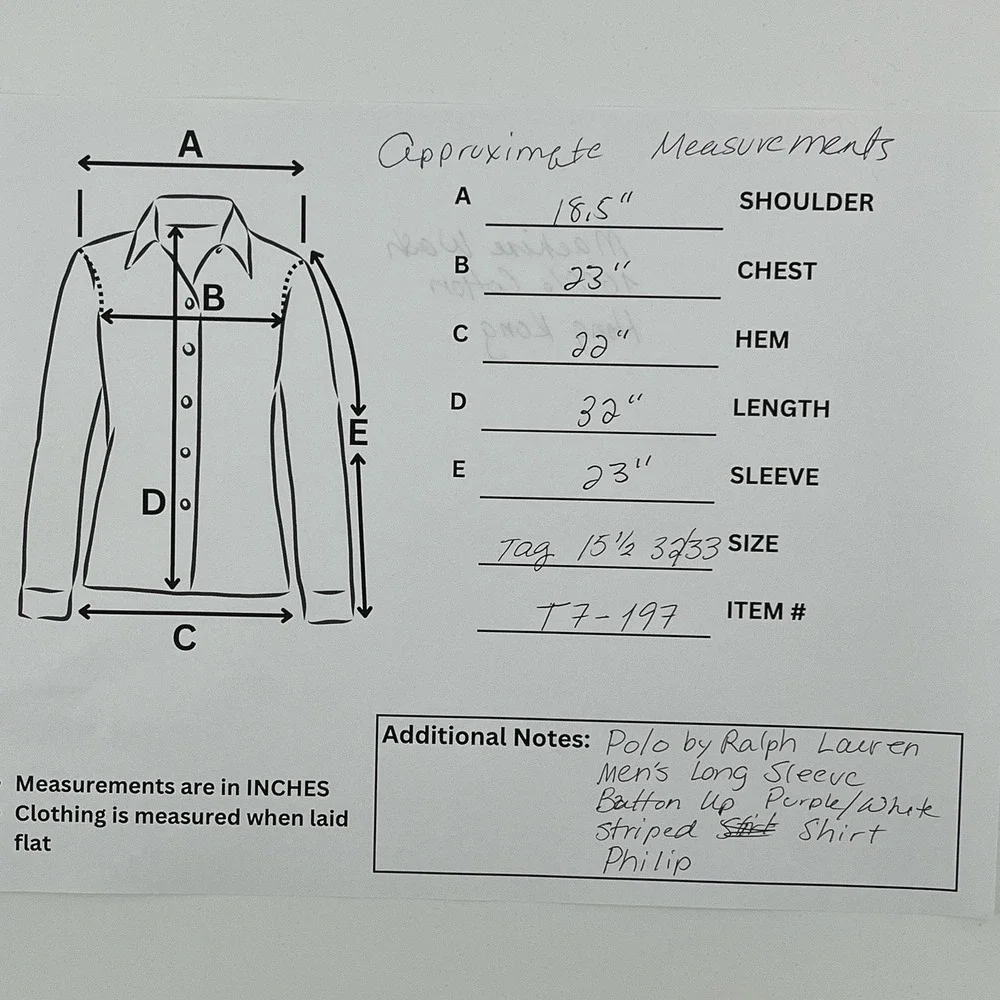 Approximate Measurements
A
A 18.5" SHOULDER
B 23" CHEST
B
C 22" HEM
D 32" LENGTH
E
E 23" SLEEVE
D
Tag 15 1/2 32/33 SIZE
T7-197 ITEM #
C
Additional Notes: Polo by Ralph Lauren
Men's Long Sleeve
Button Up Purple/White
Striped Shirt
Philip
Measurements are in INCHES
Clothing is measured when laid
flat
Machine Wash
Cotton
Hong Kong